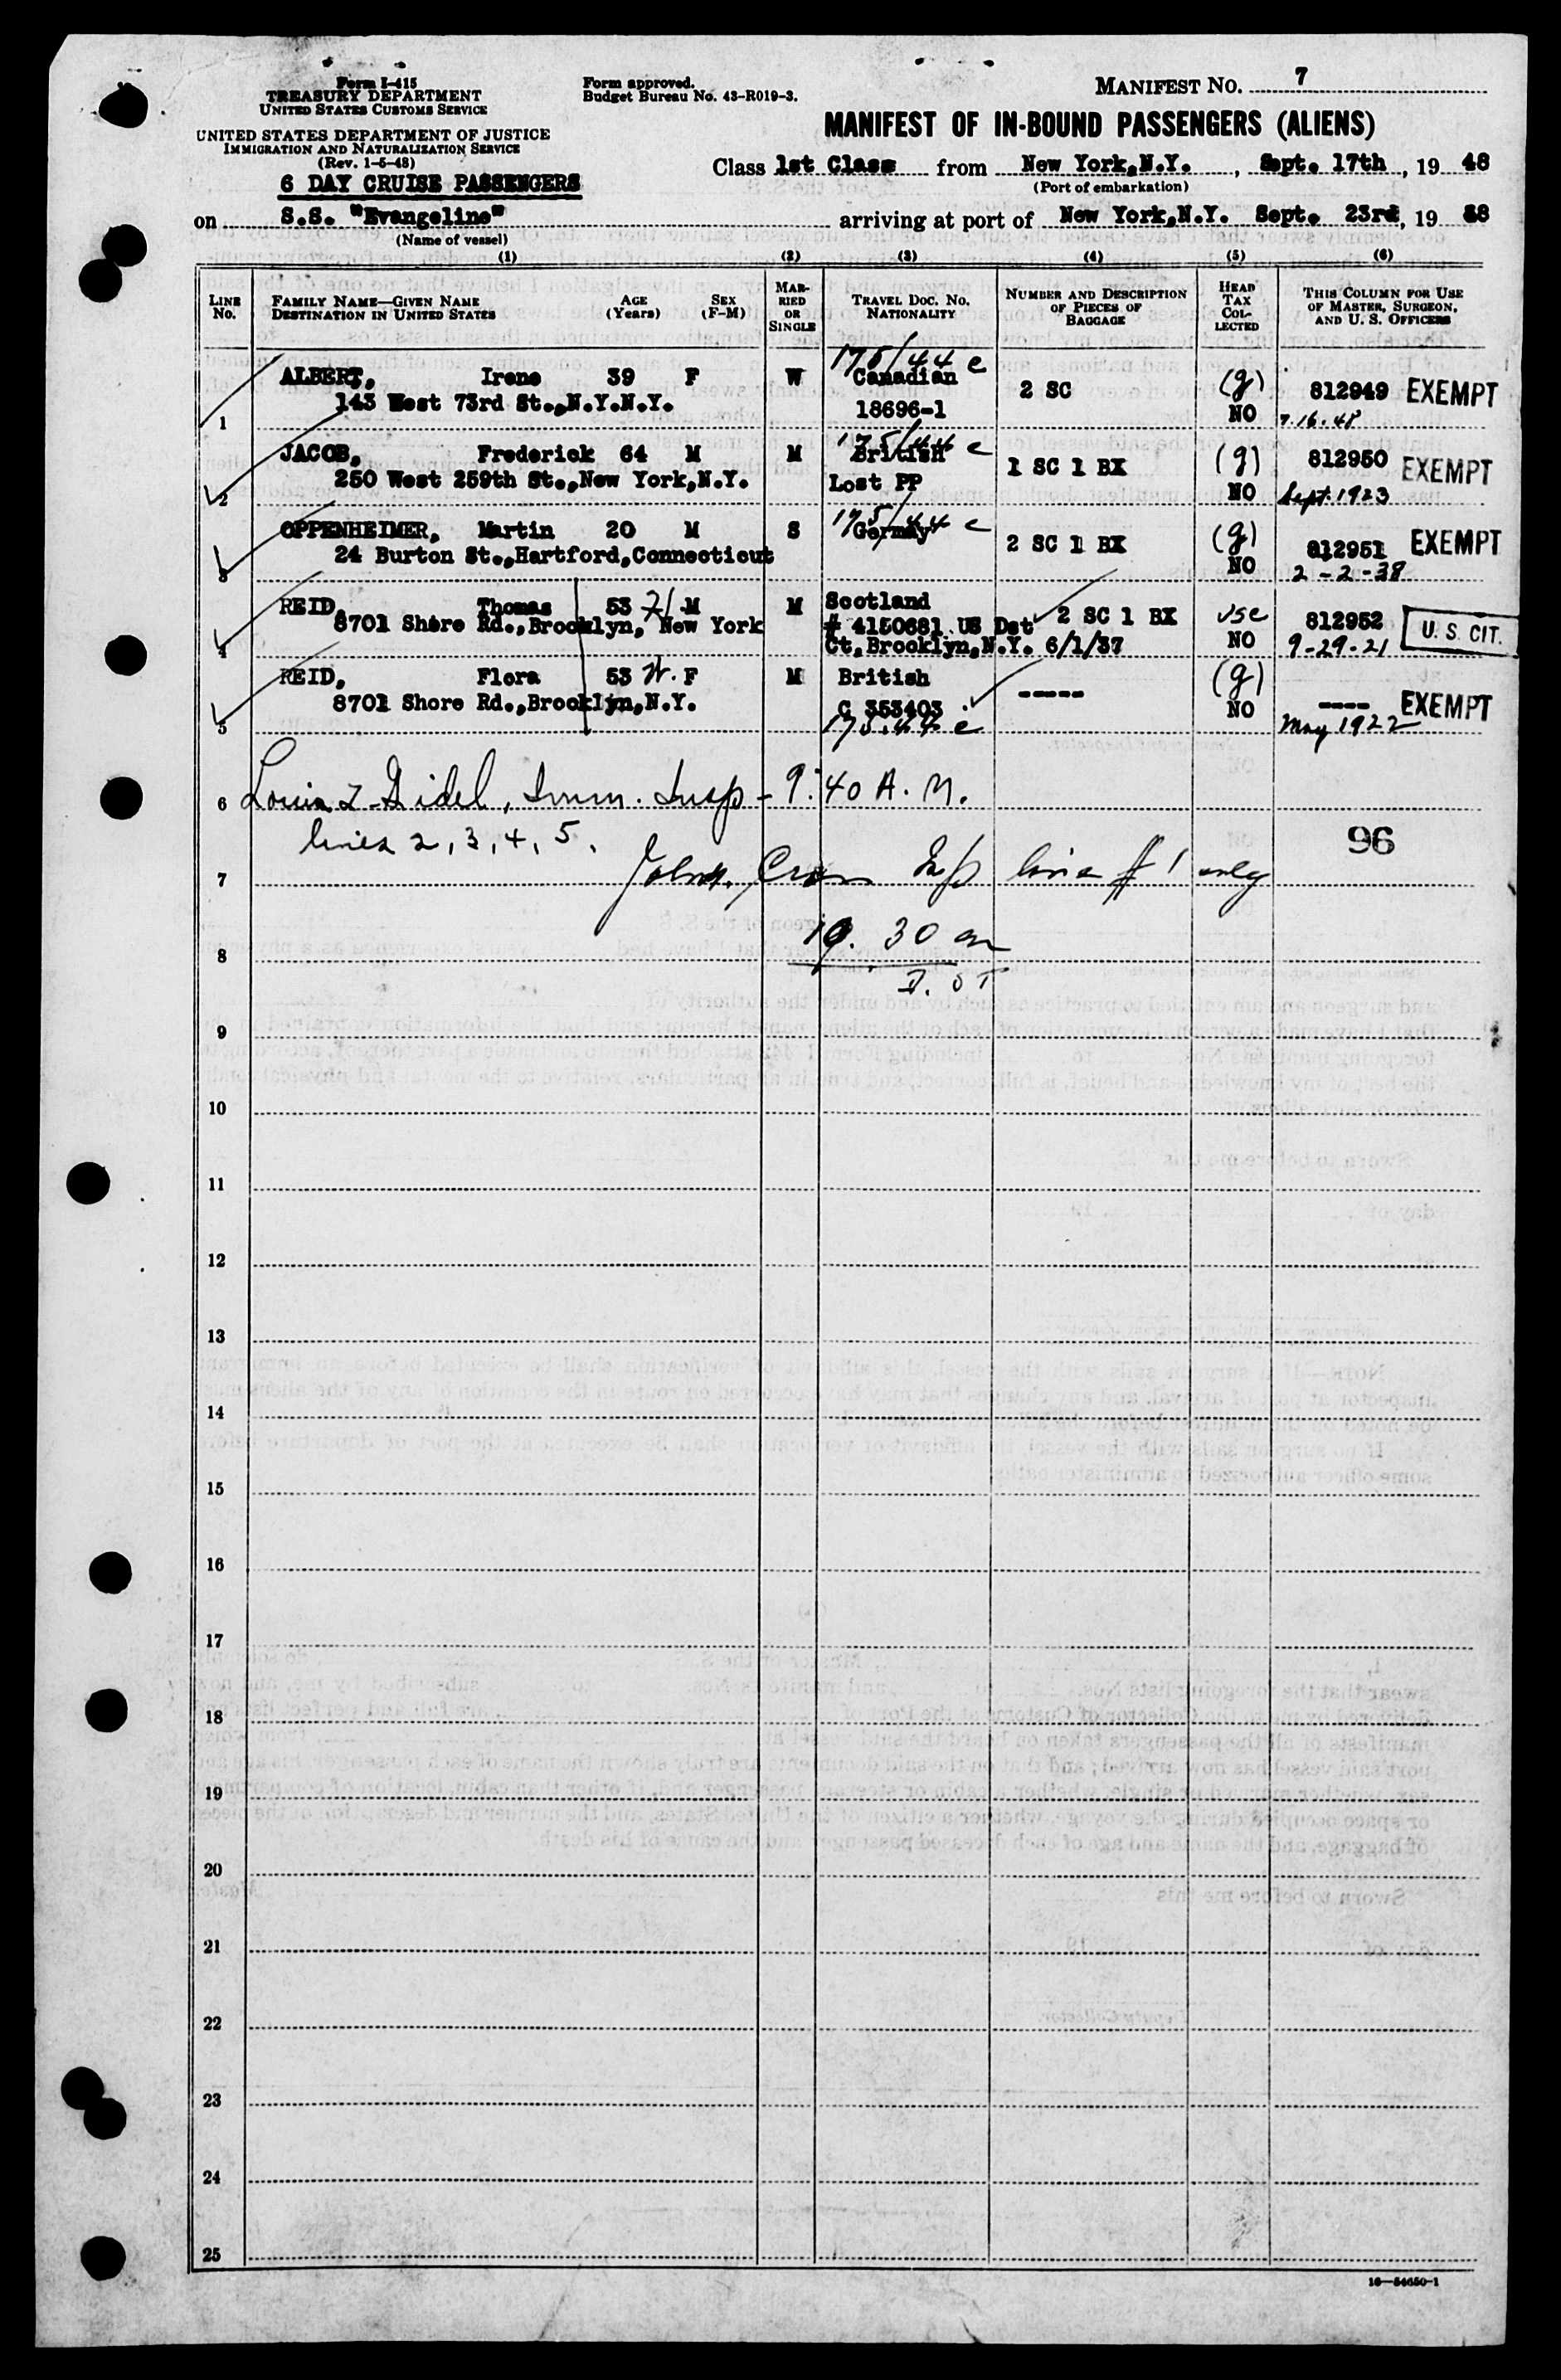 Form I-415
TREASURY DEPARTMENT
UNITED STATES CUSTOMS SERVICE
UNITED STATES DEPARTMENT OF JUSTICE
IMMIGRATION AND NATURALIZATION SERVICE
(Rev. 1-5-48)
Form approved.
Budget Bureau No. 43-R019-3.
MANIFEST NO. 7
MANIFEST OF IN-BOUND PASSENGERS (ALIENS)
6 DAY CRUISE PASSENGERS
Class 1st Class from New York,N.Y., Sept. 17th, 19 48
(Port of embarkation)
on S.S. "Evangeline" arriving at port of New York,N.Y. Sept. 23rd, 19 48
(Name of vessel)
(1) (2) (3) (4) (5) (6)
LINE No.
FAMILY NAME—GIVEN NAME
DESTINATION IN UNITED STATES
AGE (Years)
SEX (F-M)
MARRIED OR SINGLE
TRAVEL DOC. NO. NATIONALITY
NUMBER AND DESCRIPTION OF PIECES OF BAGGAGE
HEAD TAX COLLECTED
THIS COLUMN FOR USE OF MASTER, SURGEON, AND U. S. OFFICERS
175/44 e
ALBERT, Irene 39 F W Canadian 2 SC (g) 812949 EXEMPT
143 West 73rd St.,N.Y.N.Y. 18696-1 NO 7.16.48
1
175/44 e
JACOB, Frederick 64 M M British 1 SC 1 BX (g) 812950 EXEMPT
250 West 259th St.,New York,N.Y. Lost PP NO Sept. 1923
2
175/44 e
OPPENHEIMER, Martin 20 M S Germay 2 SC 1 BX (g) 812951 EXEMPT
24 Burton St.,Hartford,Connecticut NO 2-2-38
3
REID, Thomas 53 M M Scotland 2 SC 1 BX USC 812952 U. S. CIT.
8701 Shore Rd.,Brooklyn, New York # 4150681 US Dst
Ct,Brooklyn,N.Y. 6/1/37 NO 9-29-21
4
REID, Flora 53 F M British ----- (g) ---- EXEMPT
8701 Shore Rd.,Brooklyn,N.Y. C 353403 NO May 1922
175.44 e
5
6 Imm. Insp - 9:40 A.M.
lines 2, 3, 4, 5.
96
7 Insp line # 1 only
8 10.30 am
D.ST
9
10
11
12
13
14
15
16
17
18
19
20
21
22
23
24
25
16—54650-1